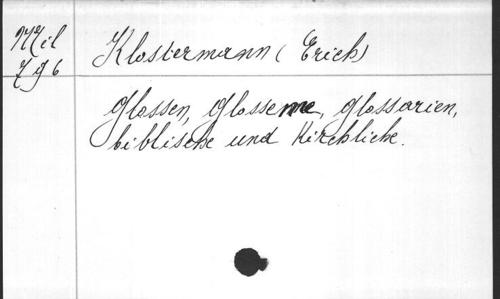 Mil
7g6
Klostermann (Erich)
Glossen, Glosseme, Glossarien,
biblische und Kirchliche.